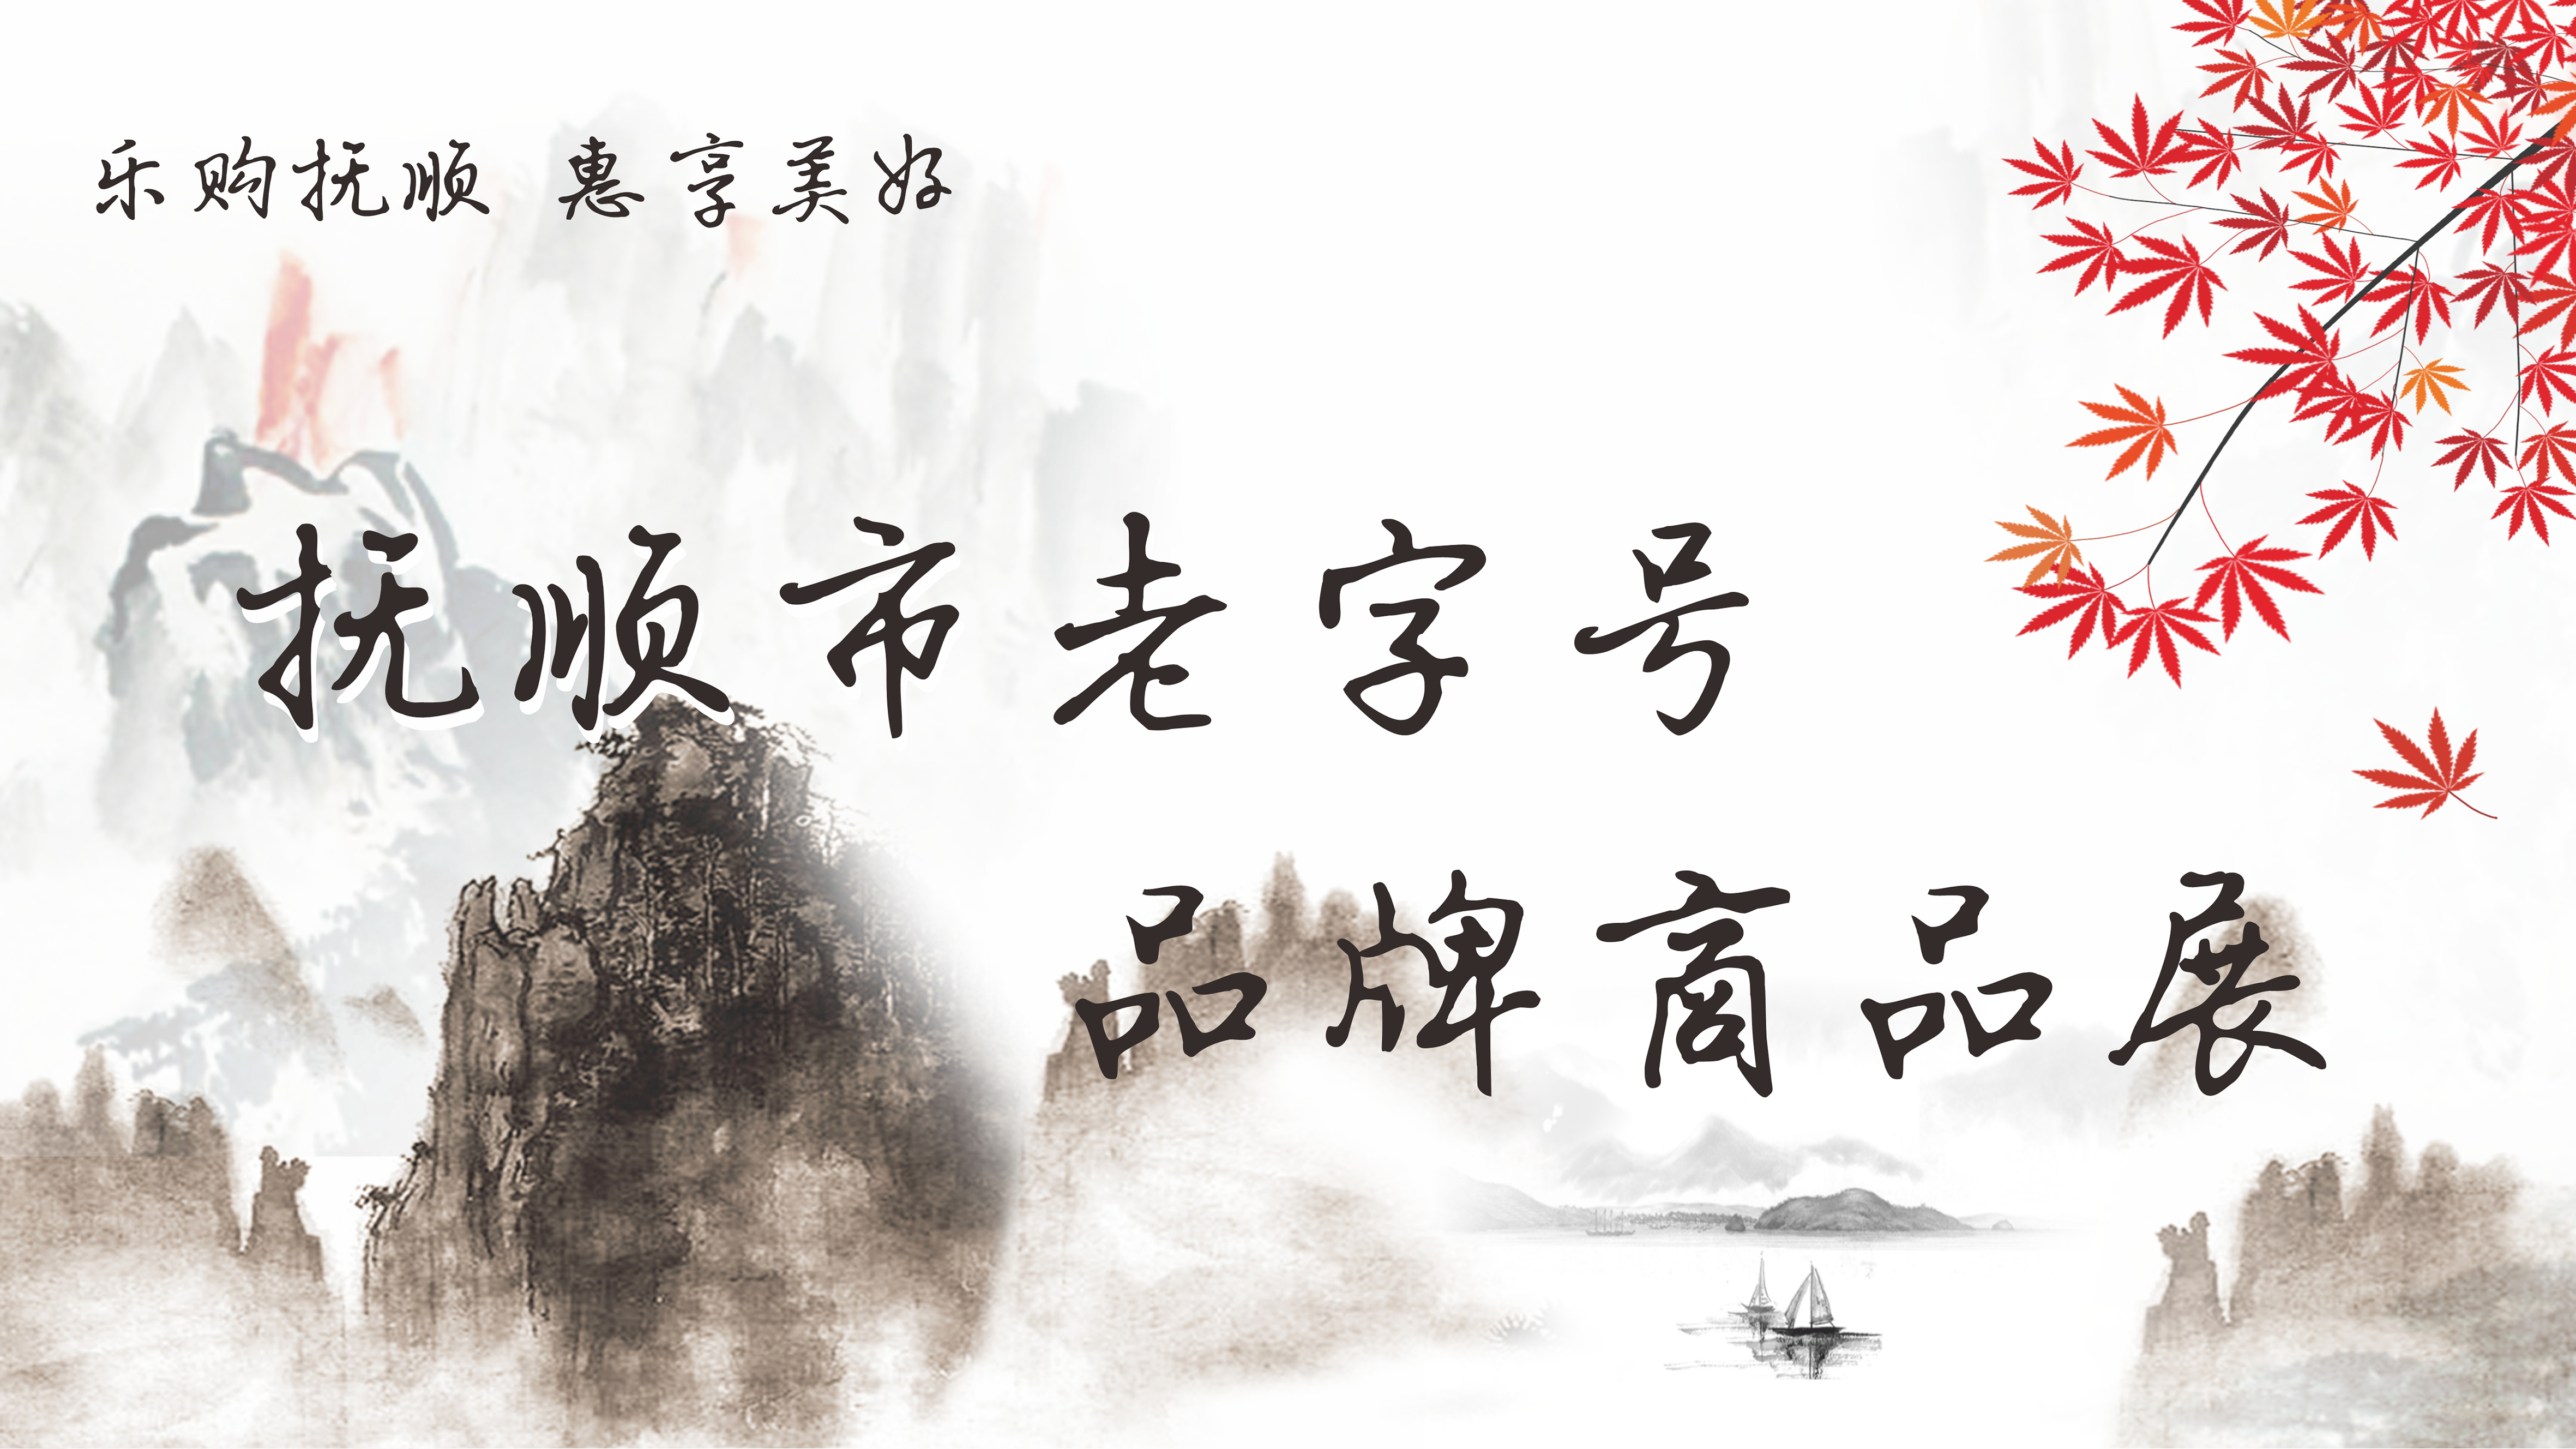 乐购抚顺 惠享美好
抚顺市老字号
品牌商品展